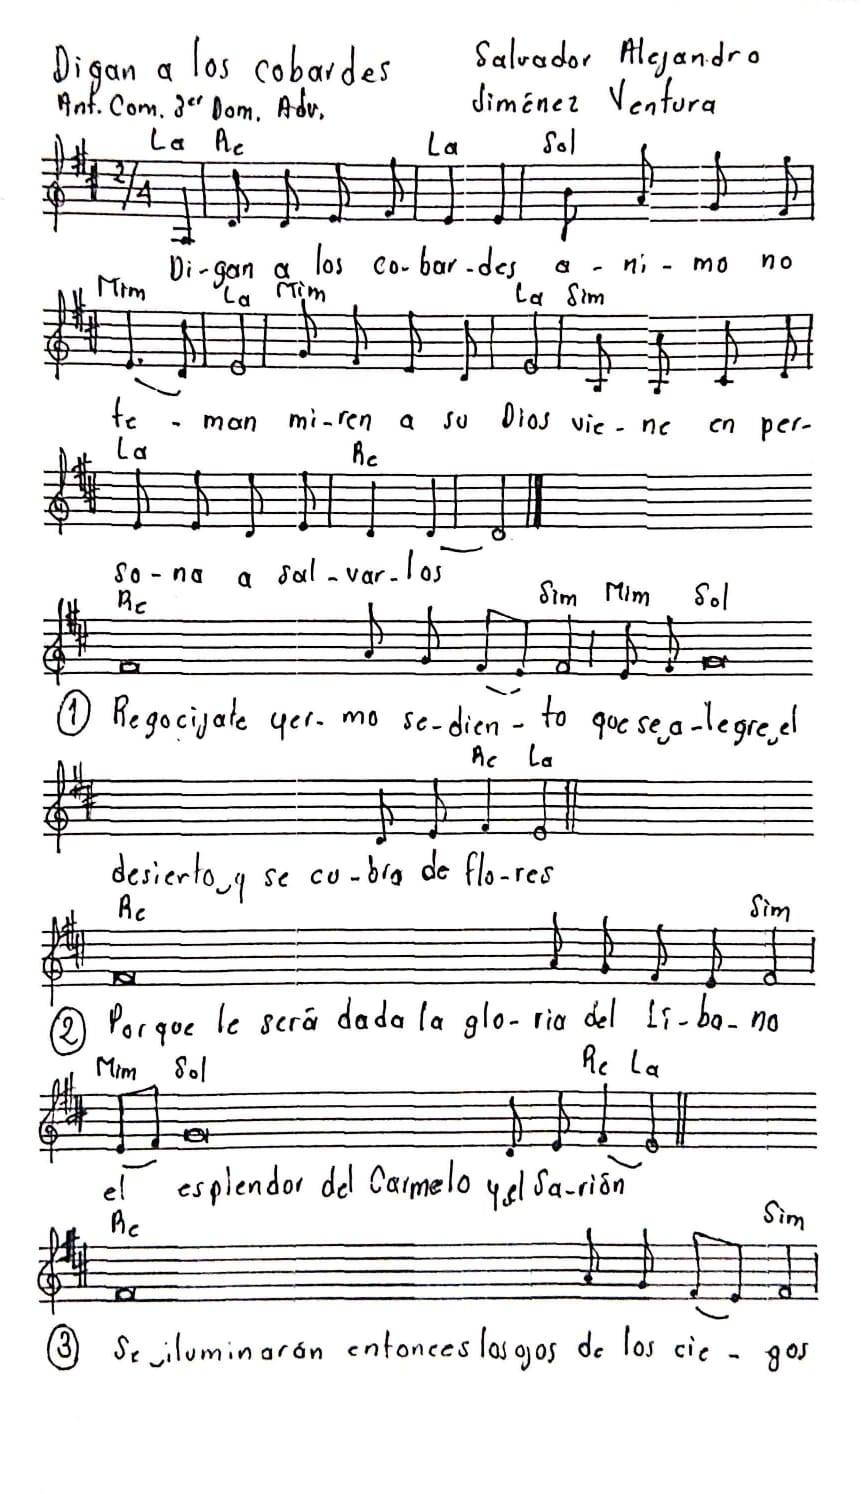 Digan a los cobardes
Salvador Alejandro
Ant. Com. 3er Dom. Adv.
Jiménez Ventura
La Re La Sol
2/4
Di-gan a los co-bar-des a-ni-mo no
Mim La Mim La Sim
te - man mi-ren a su Dios vie-ne en per-
La Re
so-na a sal-var-los
Re Sim Mim Sol
1 Regocijate yer-mo se-dien-to que se a-legre el
Re La
desierto y se cu-bra de flo-res
Re Sim
2 Porque le será dada la glo-ria del Lí-ba-no
Mim Sol Re La
el esplendor del Carmelo y el Sa-rión
Re Sim
3 Se iluminarán entonces los ojos de los cie-gos